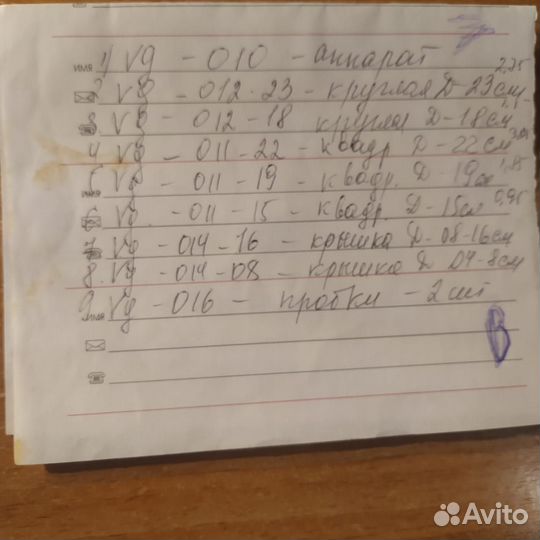 имя 1) Vg - 010 - аппарат
2 Vg - 012-23 - круглая D - 23см 2,75
3 Vg - 012-18 круглая D - 18см
4 Vg - 011-22 - квадр D - 22см
5 Vg - 011-19 - квадр. D - 19см
6 Vg - 011-15 - квадр. D - 15см 0,95
7 Vg - 014-16 - крышка D - 08-16см
8. Vg - 014-08 - крышка D 04-8см
9. Vg - 016 - пробки - 2 шт
имя
В
Avito